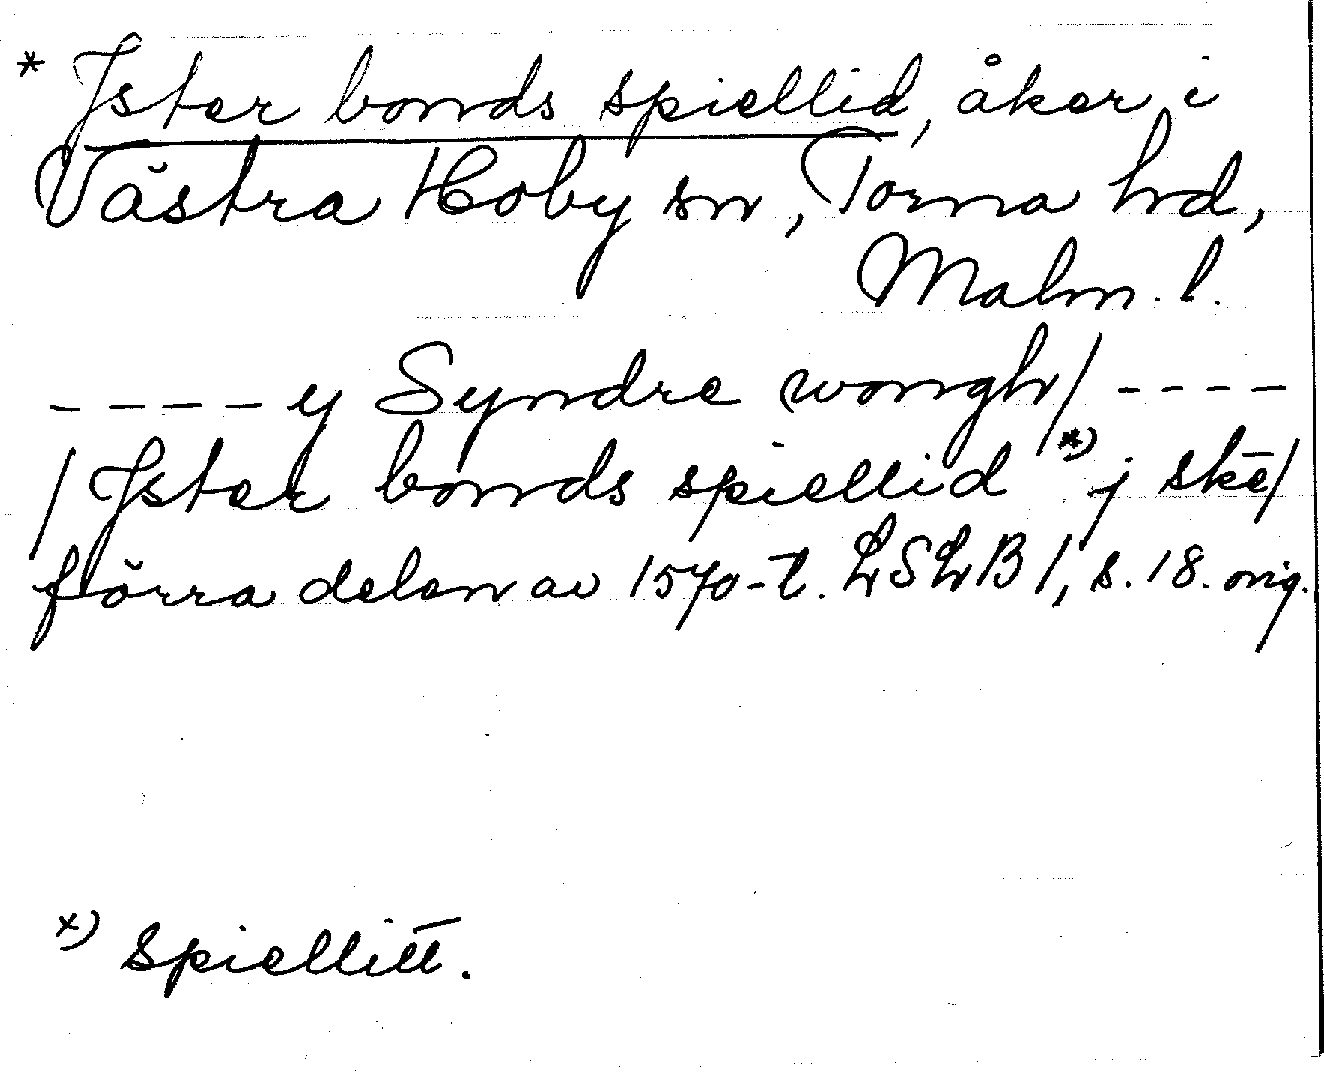 * Jster bonds spiellid, åker i
Västra Hoby sn, Torna hd,
Malm. l.
- - - - y Syndre wongh/ - - - -
/Jster bonds spiellid *) j skē/
förra delen av 1570-t. LSLB 1, s. 18. orig.
*) spiellitt.